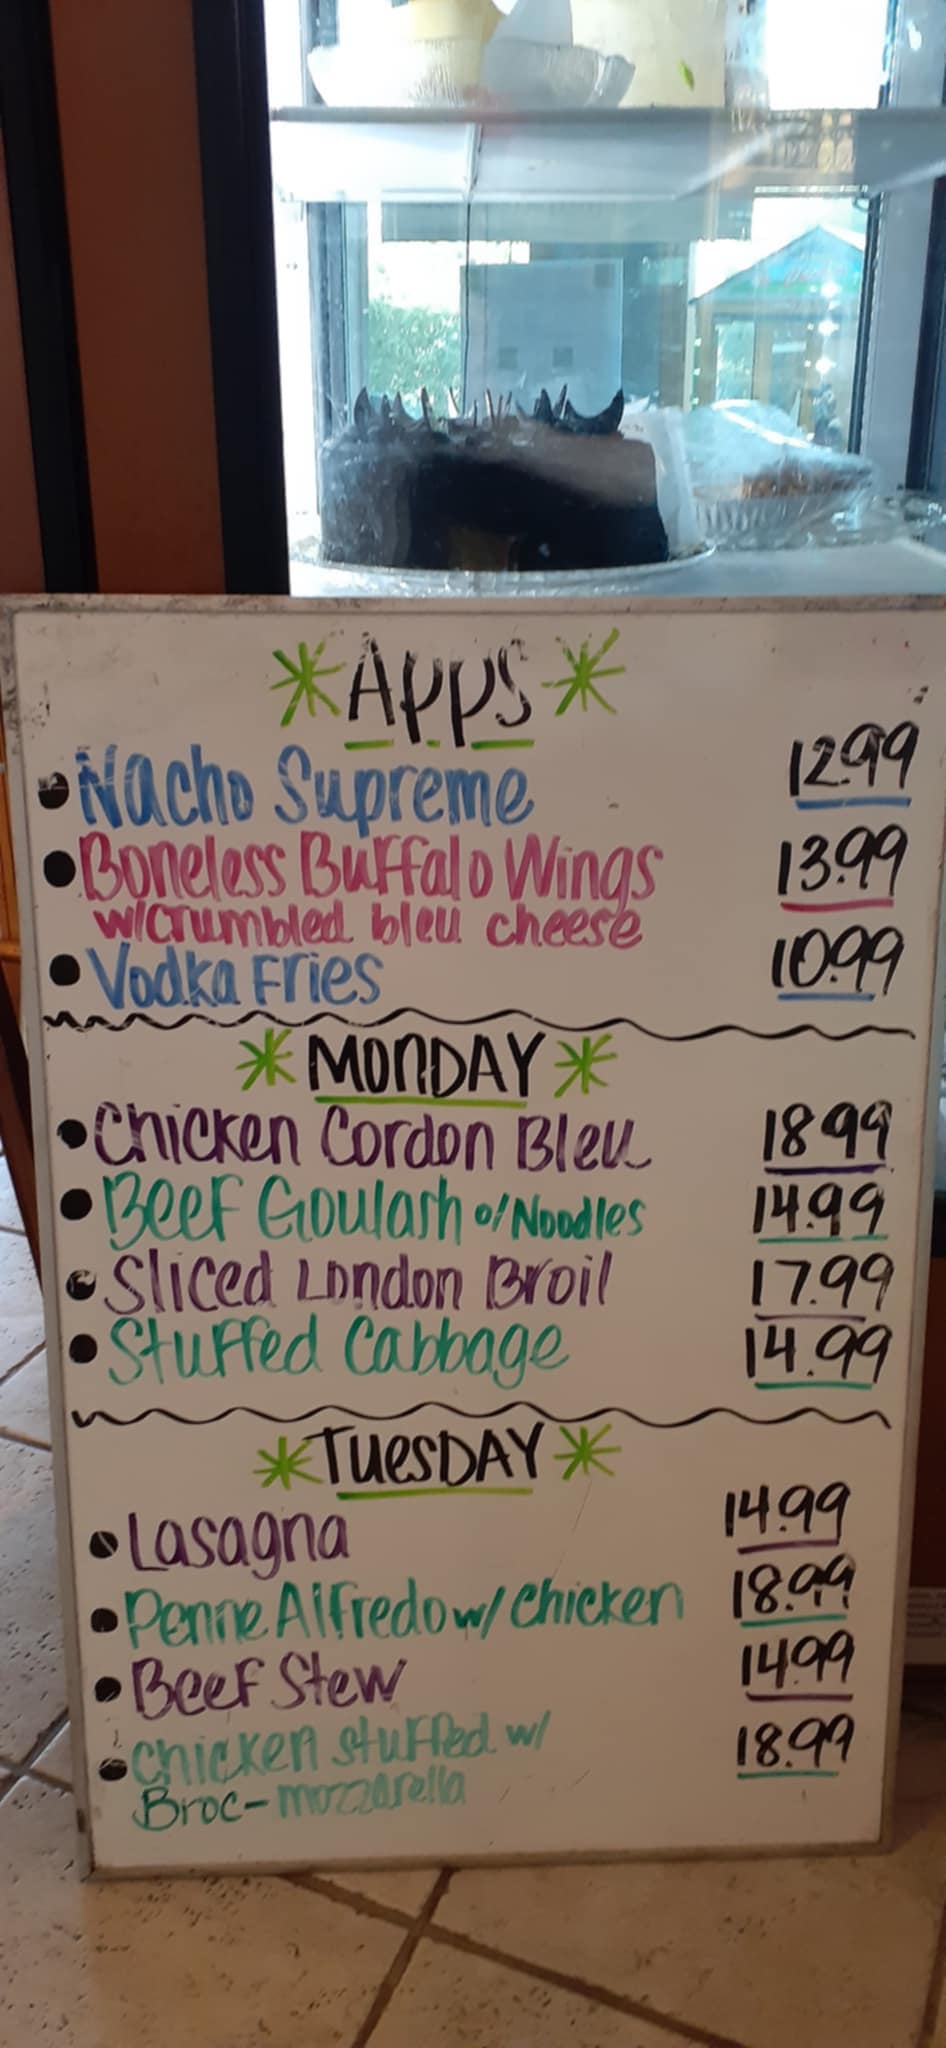 *Apps*
• Nacho Supreme 12.99
• Boneless Buffalo Wings 13.99
w/crumbled bleu cheese
• Vodka Fries 10.99
*MONDAY*
• Chicken Cordon Bleu 18.99
• Beef Goulash o/Noodles 14.99
• Sliced London Broil 17.99
• Stuffed Cabbage 14.99
*TUESDAY*
• Lasagna 14.99
• Penne Alfredo w/ Chicken 18.99
• Beef Stew 14.99
• Chicken Stuffed w/ 18.99
Broc-mozzarella